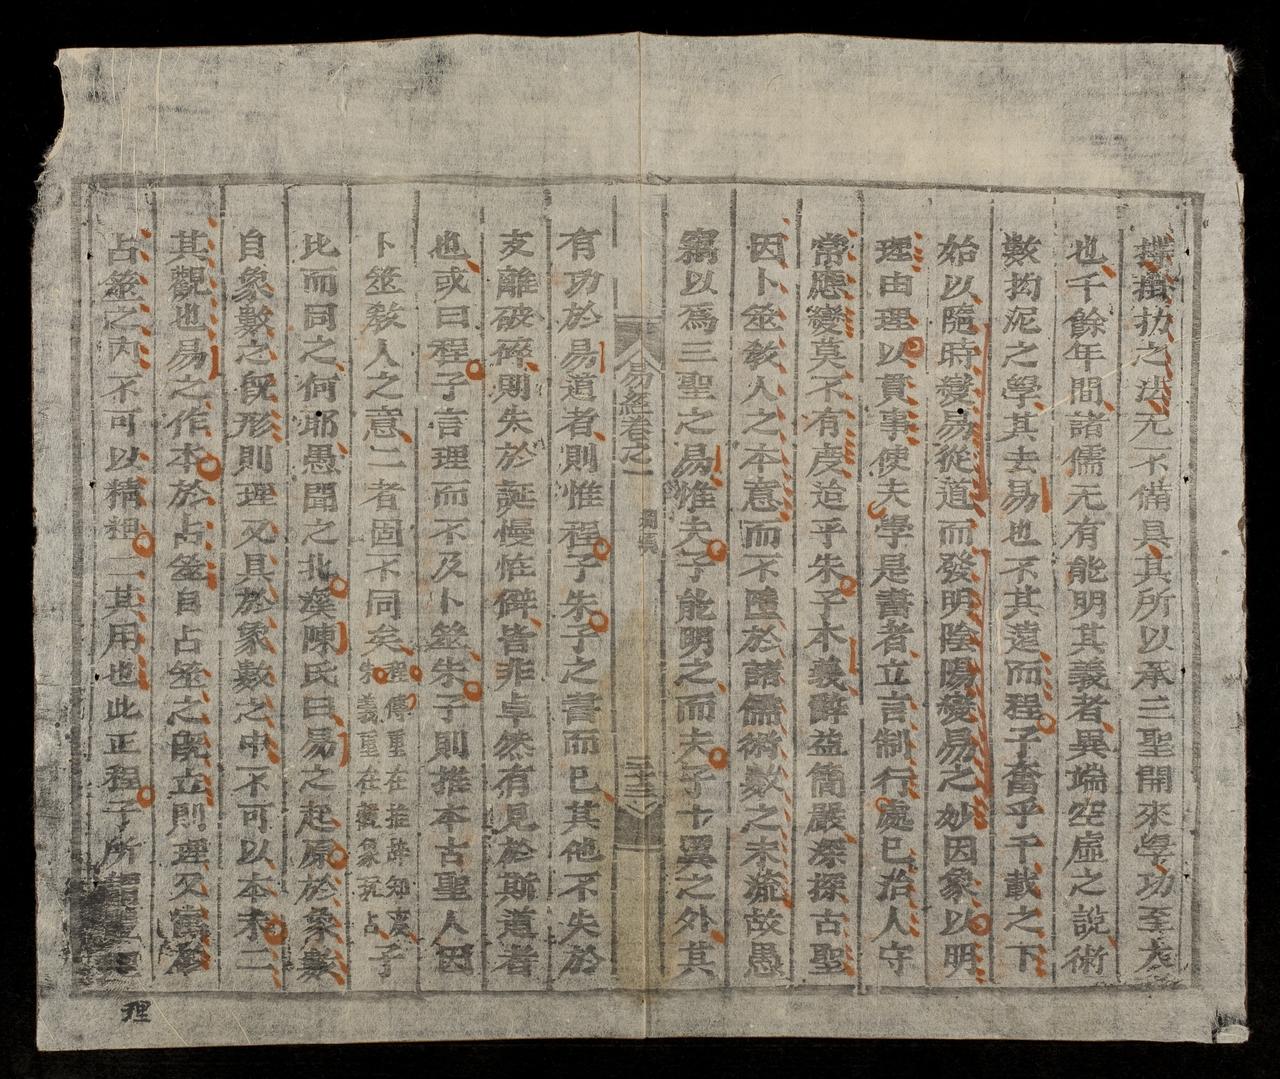 揲蓍扐之法无不備具其所以承三聖開來學功至大
也千餘年間諸儒无有能明其義者異端空虛之說術
數拘泥之學其去易也不其遠而程子奮乎千載之下
始以隨時變易從道而發明陰陽變易之妙因象以明
理由理以貫事使夫學是書者立言制行處已治人守
常應變莫不有度迨乎朱子本義辭益簡嚴深探古聖
因卜筮敎人之本意而不墮於諸儒術數之末流故愚
竊以爲三聖之易惟夫子能明之而夫子十翼之外其
易經卷之一
二十三
有功於易道者則惟程子朱子之書而已其他不失於
支離破碎則失於誕慢怪僻皆非卓然有見於斯道者
也或曰程子言理而不及卜筮朱子則推本古聖人因
卜筮敎人之意二者固不同矣程傳重在推辭知變朱義重在觀象玩占子
比而同之何耶愚聞之北溪陳氏曰易之起原於象數
自象數之旣形則理又具於象數之中不可以本末二
其觀也易之作本於占筮自占筮之旣立則理又寓於
占筮之内不可以精粗二其用也此正程子所謂
理